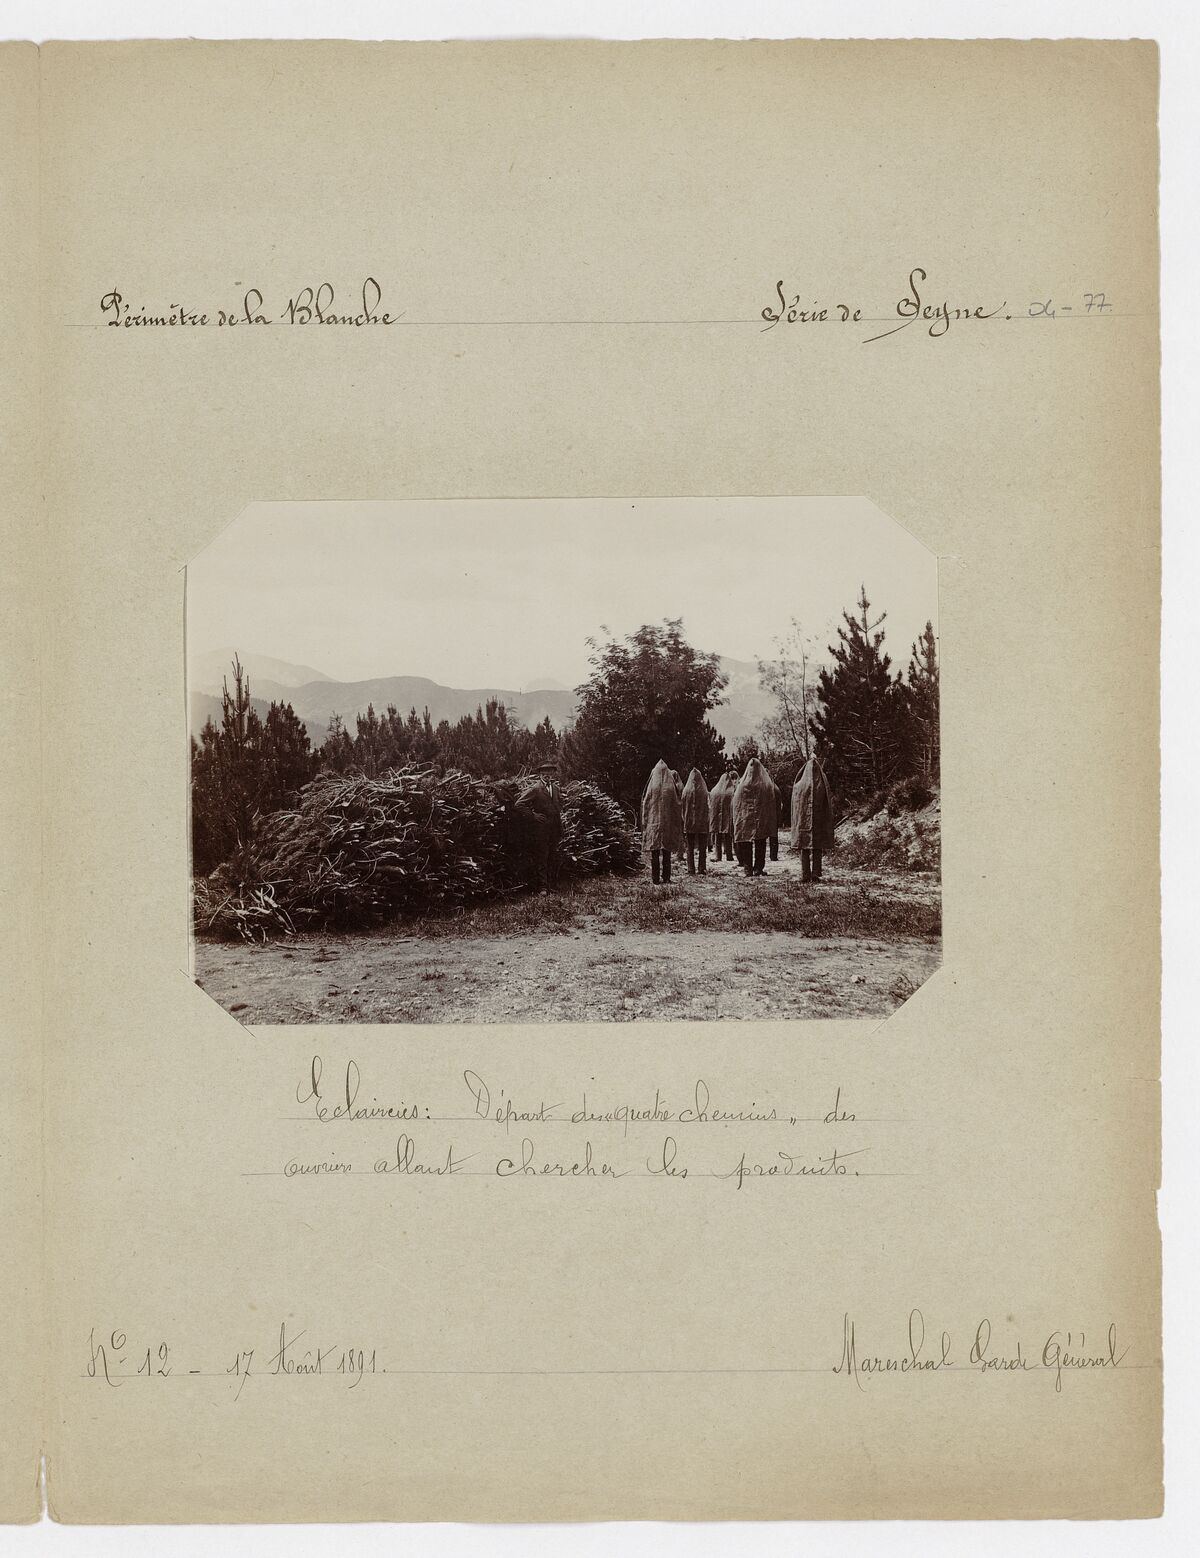 Périmètre de la Blanche
Série de Seyne. 04-77.
Eclaircies: Départ des "quatre chemins" des
ouvriers allant chercher les produits.
No 12 - 17 Août 1891.
Mareschal Garde Général